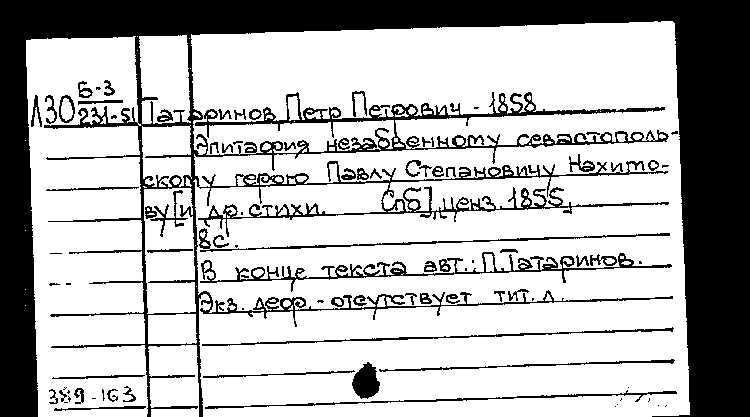 Л30 Б-3
231-51 Татаринов, Петр Петрович, - 1858.
Эпитафия незабвенному севастополь-
скому герою Павлу Степановичу Нахимо-
ву [и др. стихи. Спб], ценз. 1855,
8с.
В конце текста авт.: П. Татаринов.
Экз. деф. - отсутствует тит. л.
389-163